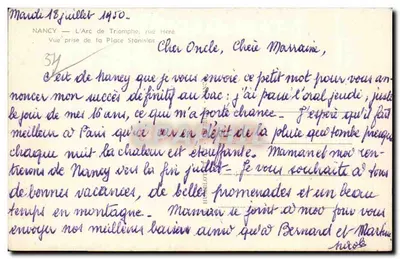 Mardi 18 juillet 1950.
NANCY — L'Arc de Triomphe, rue Héré
Vue prise de la Place Stanislas
54
Cher Oncle, Chère Marraine,
C'est de Nancy que je vous envoie ce petit mot pour vous an-
noncer mon succès définitif au bac : j'ai passé l'oral jeudi, juste
le jour de mes 16 ans, ce qui m'a porté chance. J'espère qu'il fait
meilleur à Paris qu'ici car en dépit de la pluie qui tombe presque
chaque nuit la chaleur est étouffante. Maman et moi ren-
trerons de Nancy vers la fin juillet. Je vous souhaite à tous
de bonnes vacances, de belles promenades et un beau
temps en montagne. Maman se joint à moi pour vous
envoyer nos meilleurs baisers ainsi qu'à Bernard et Martine
Nicole